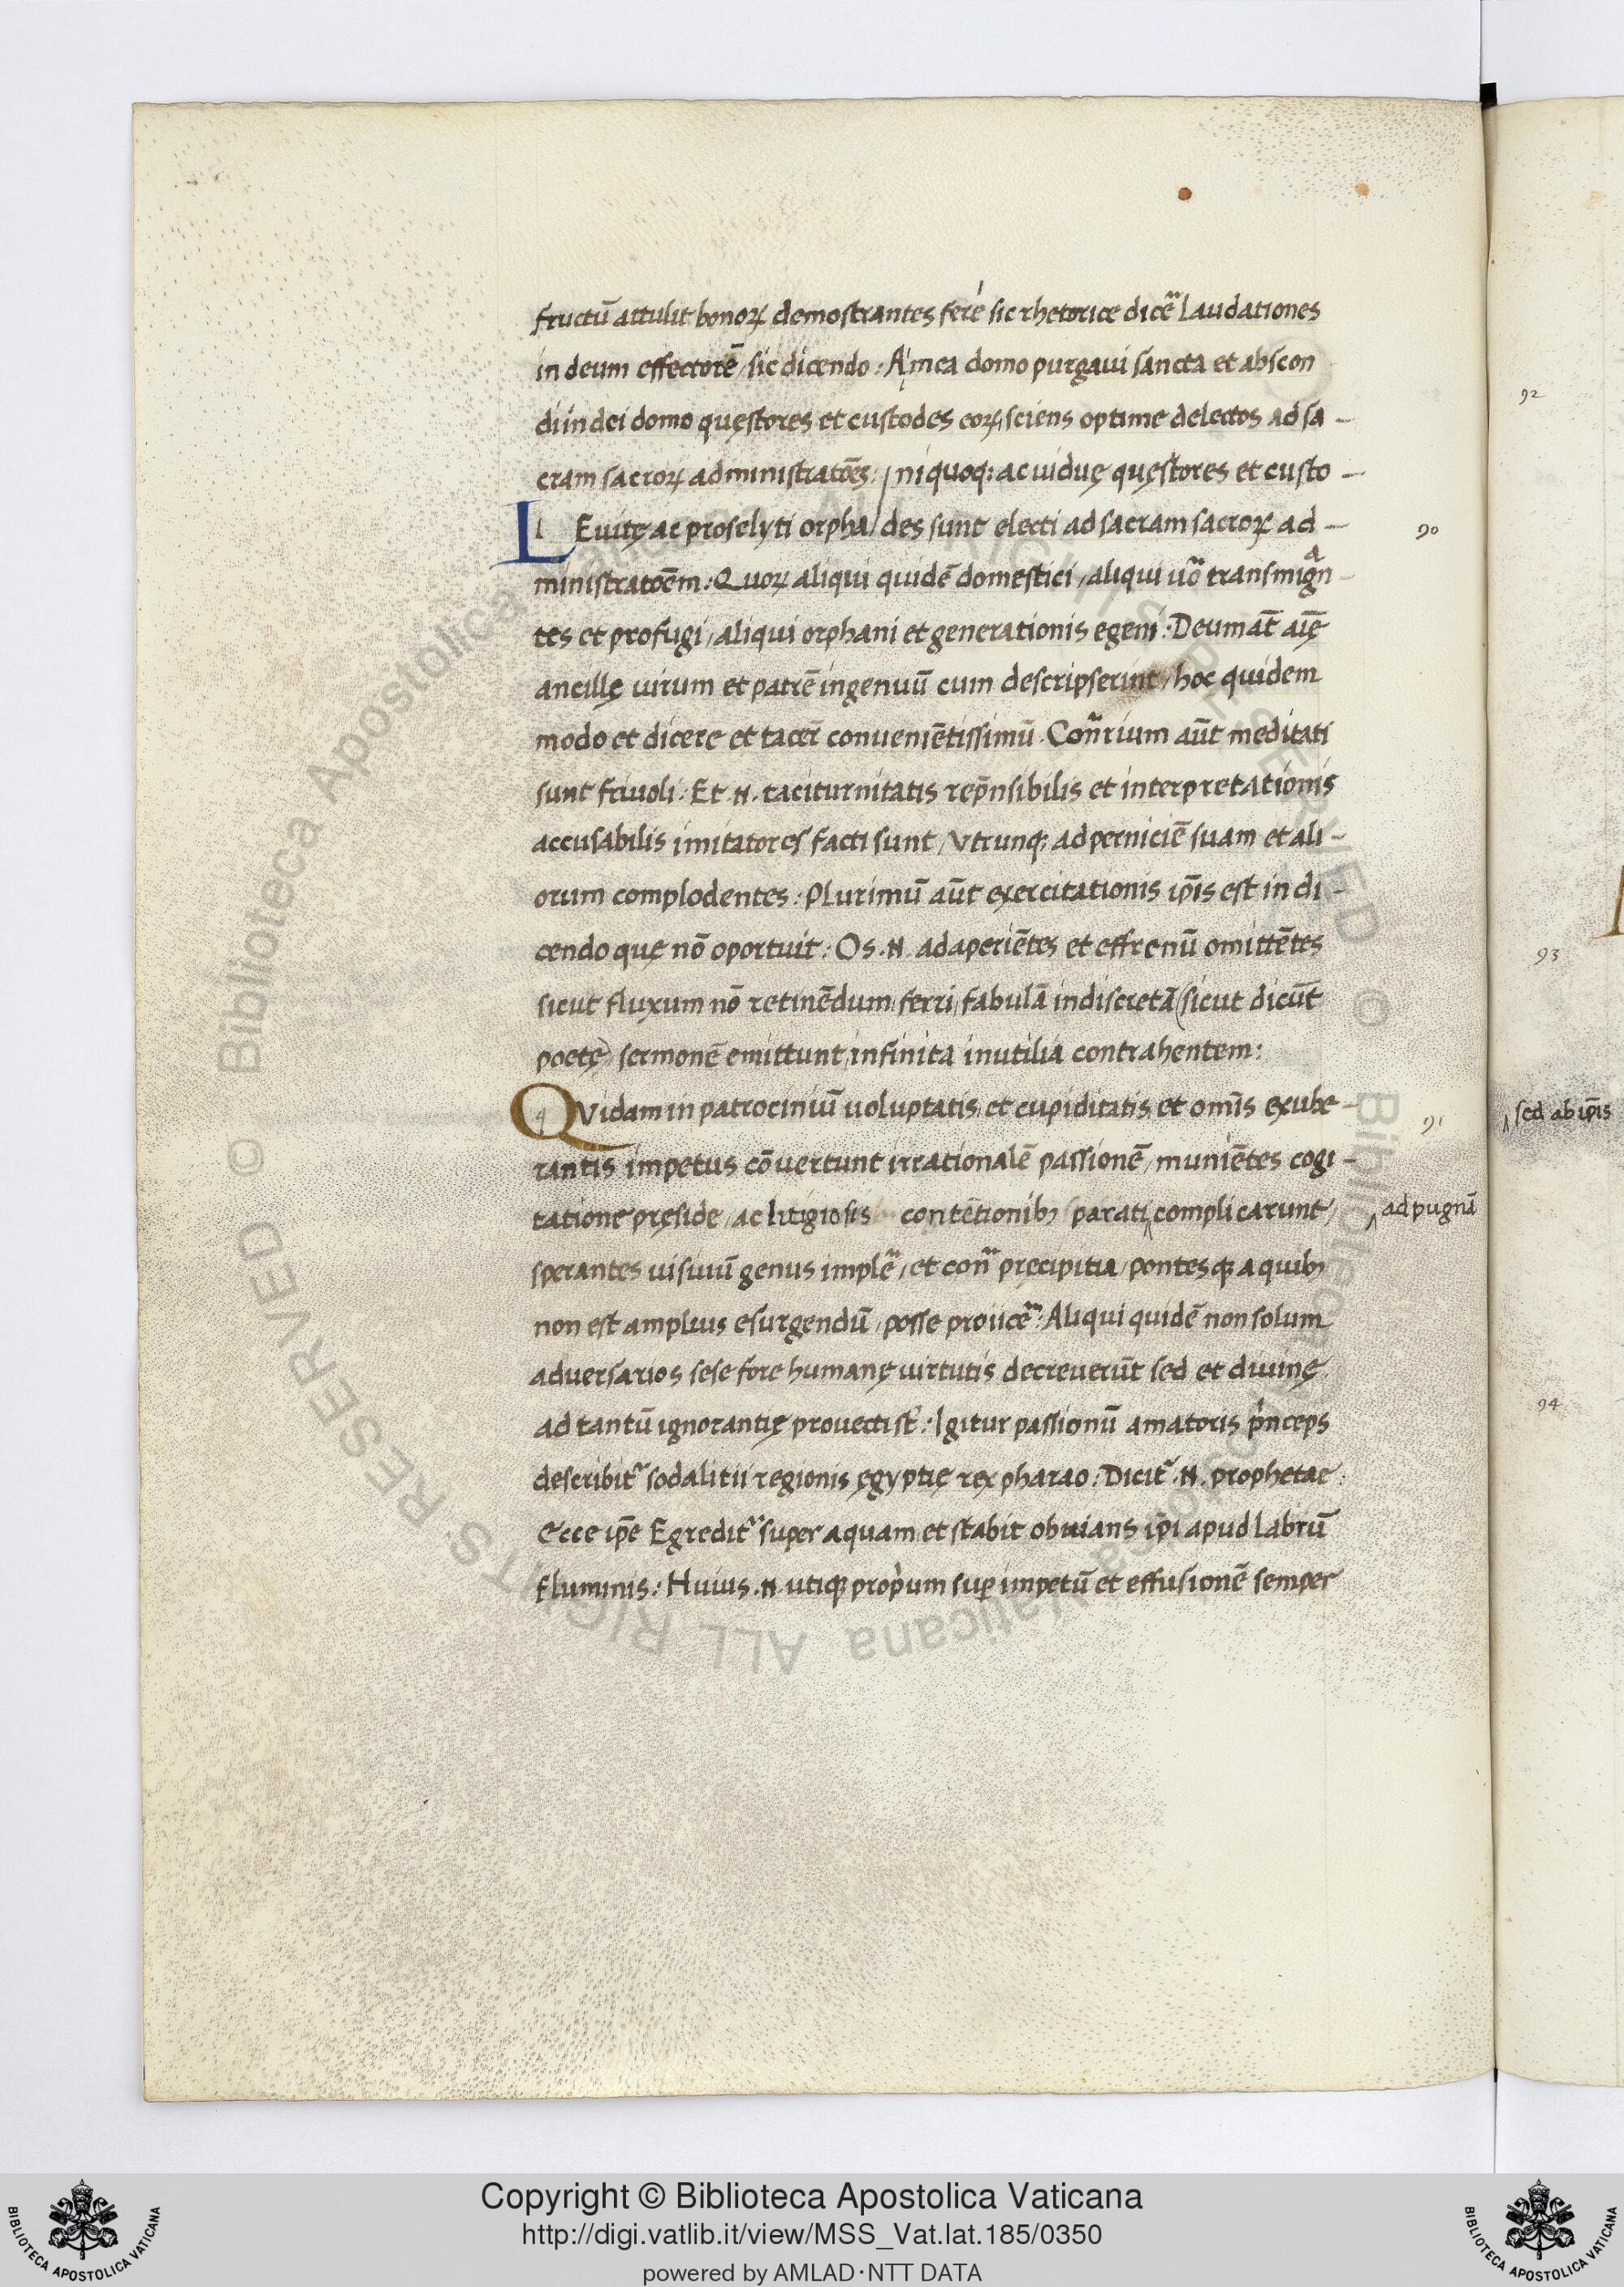 fructū attulit bonoꝝ demostrantes feré sic rhetorice dicẽ laudationes
in deum effectorē / sic dicendo : A mea domo purgaui sancta et abscon
di in dei domo quęstores et custodes eoꝝ, sciens optime delectos ad sa-
cram sacroꝝ administratōēs : ni quoq; ac uiduę quęstores et custo-
LEuitę ac proselyti orpha / des sunt electi ad sacram sacroꝝ ad-
ministratōēm : Quoꝝ aliqui quidē domestici / aliqui uō transmigan-
tes et profugi / aliqui orphani et generationis egeni : Deum aūt aīę
ancillę uirum et patrē ingenuū cum descripserint / hoc quidem
modo et dicere et tacēr conueniētissimū . Conr̃rium aūt meditati
sunt friuoli : Et .N. taciturnitatis rep̄nsibilis et interpretationis
accusabilis imitatores facti sunt / vtrunq; ad perniciē suam et ali-
orum complodentes : Plurimū aūt exercitationis ip̄is est in di-
cendo quę nō oportuit : Os .N. adaperiētes et effrenū omittētes
sicut fluxum nō retinēdum ferri, fabulā indiscretā (sicut dicūt
poetę) sermonē emittunt, infinita inutilia contrahentem :
QVidam in patrociniū uoluptatis et cupiditatis et om̄is exube-
rantis impetus cōuertunt irrationalē passionē / muniētes cogi-
tatione pręside / ac litigiosis contētionibꝫ parati ‸ complicarunt /
‸ ad pugnā
sperantes uisiuū genus implẽ / et conr̃ pręcipitia / pontesqꝫ a quibꝫ
non est amplius esurgendū / posse proiicẽ : Aliqui quidē non solum
aduersarios sese fore humanę uirtutis decreuerūt sed et diuinę
ad tantū ignorantię prouecti sť : Igitur passionū amatoris pⁱnceps
describiť sodalitii regionis ęgyptię rex pharao : Diciť .N. prophetae
Ecce ip̄e Egrediť super aquam, et stabit obuians ip̄i apud labrū
fluminis : Huius .N. utiqꝫ propⁱum suꝑ impetū et effusionē semper
90
91
92
93
‸ sed ab ip̄is
94
Copyright © Biblioteca Apostolica Vaticana
http://digi.vatlib.it/view/MSS_Vat.lat.185/0350
powered by AMLAD·NTT DATA
BIBLIOTECA APOSTOLICA VATICANA
BIBLIOTECA APOSTOLICA VATICANA
© Biblioteca Apostolica Vaticana ALL RIGHTS RESERVED